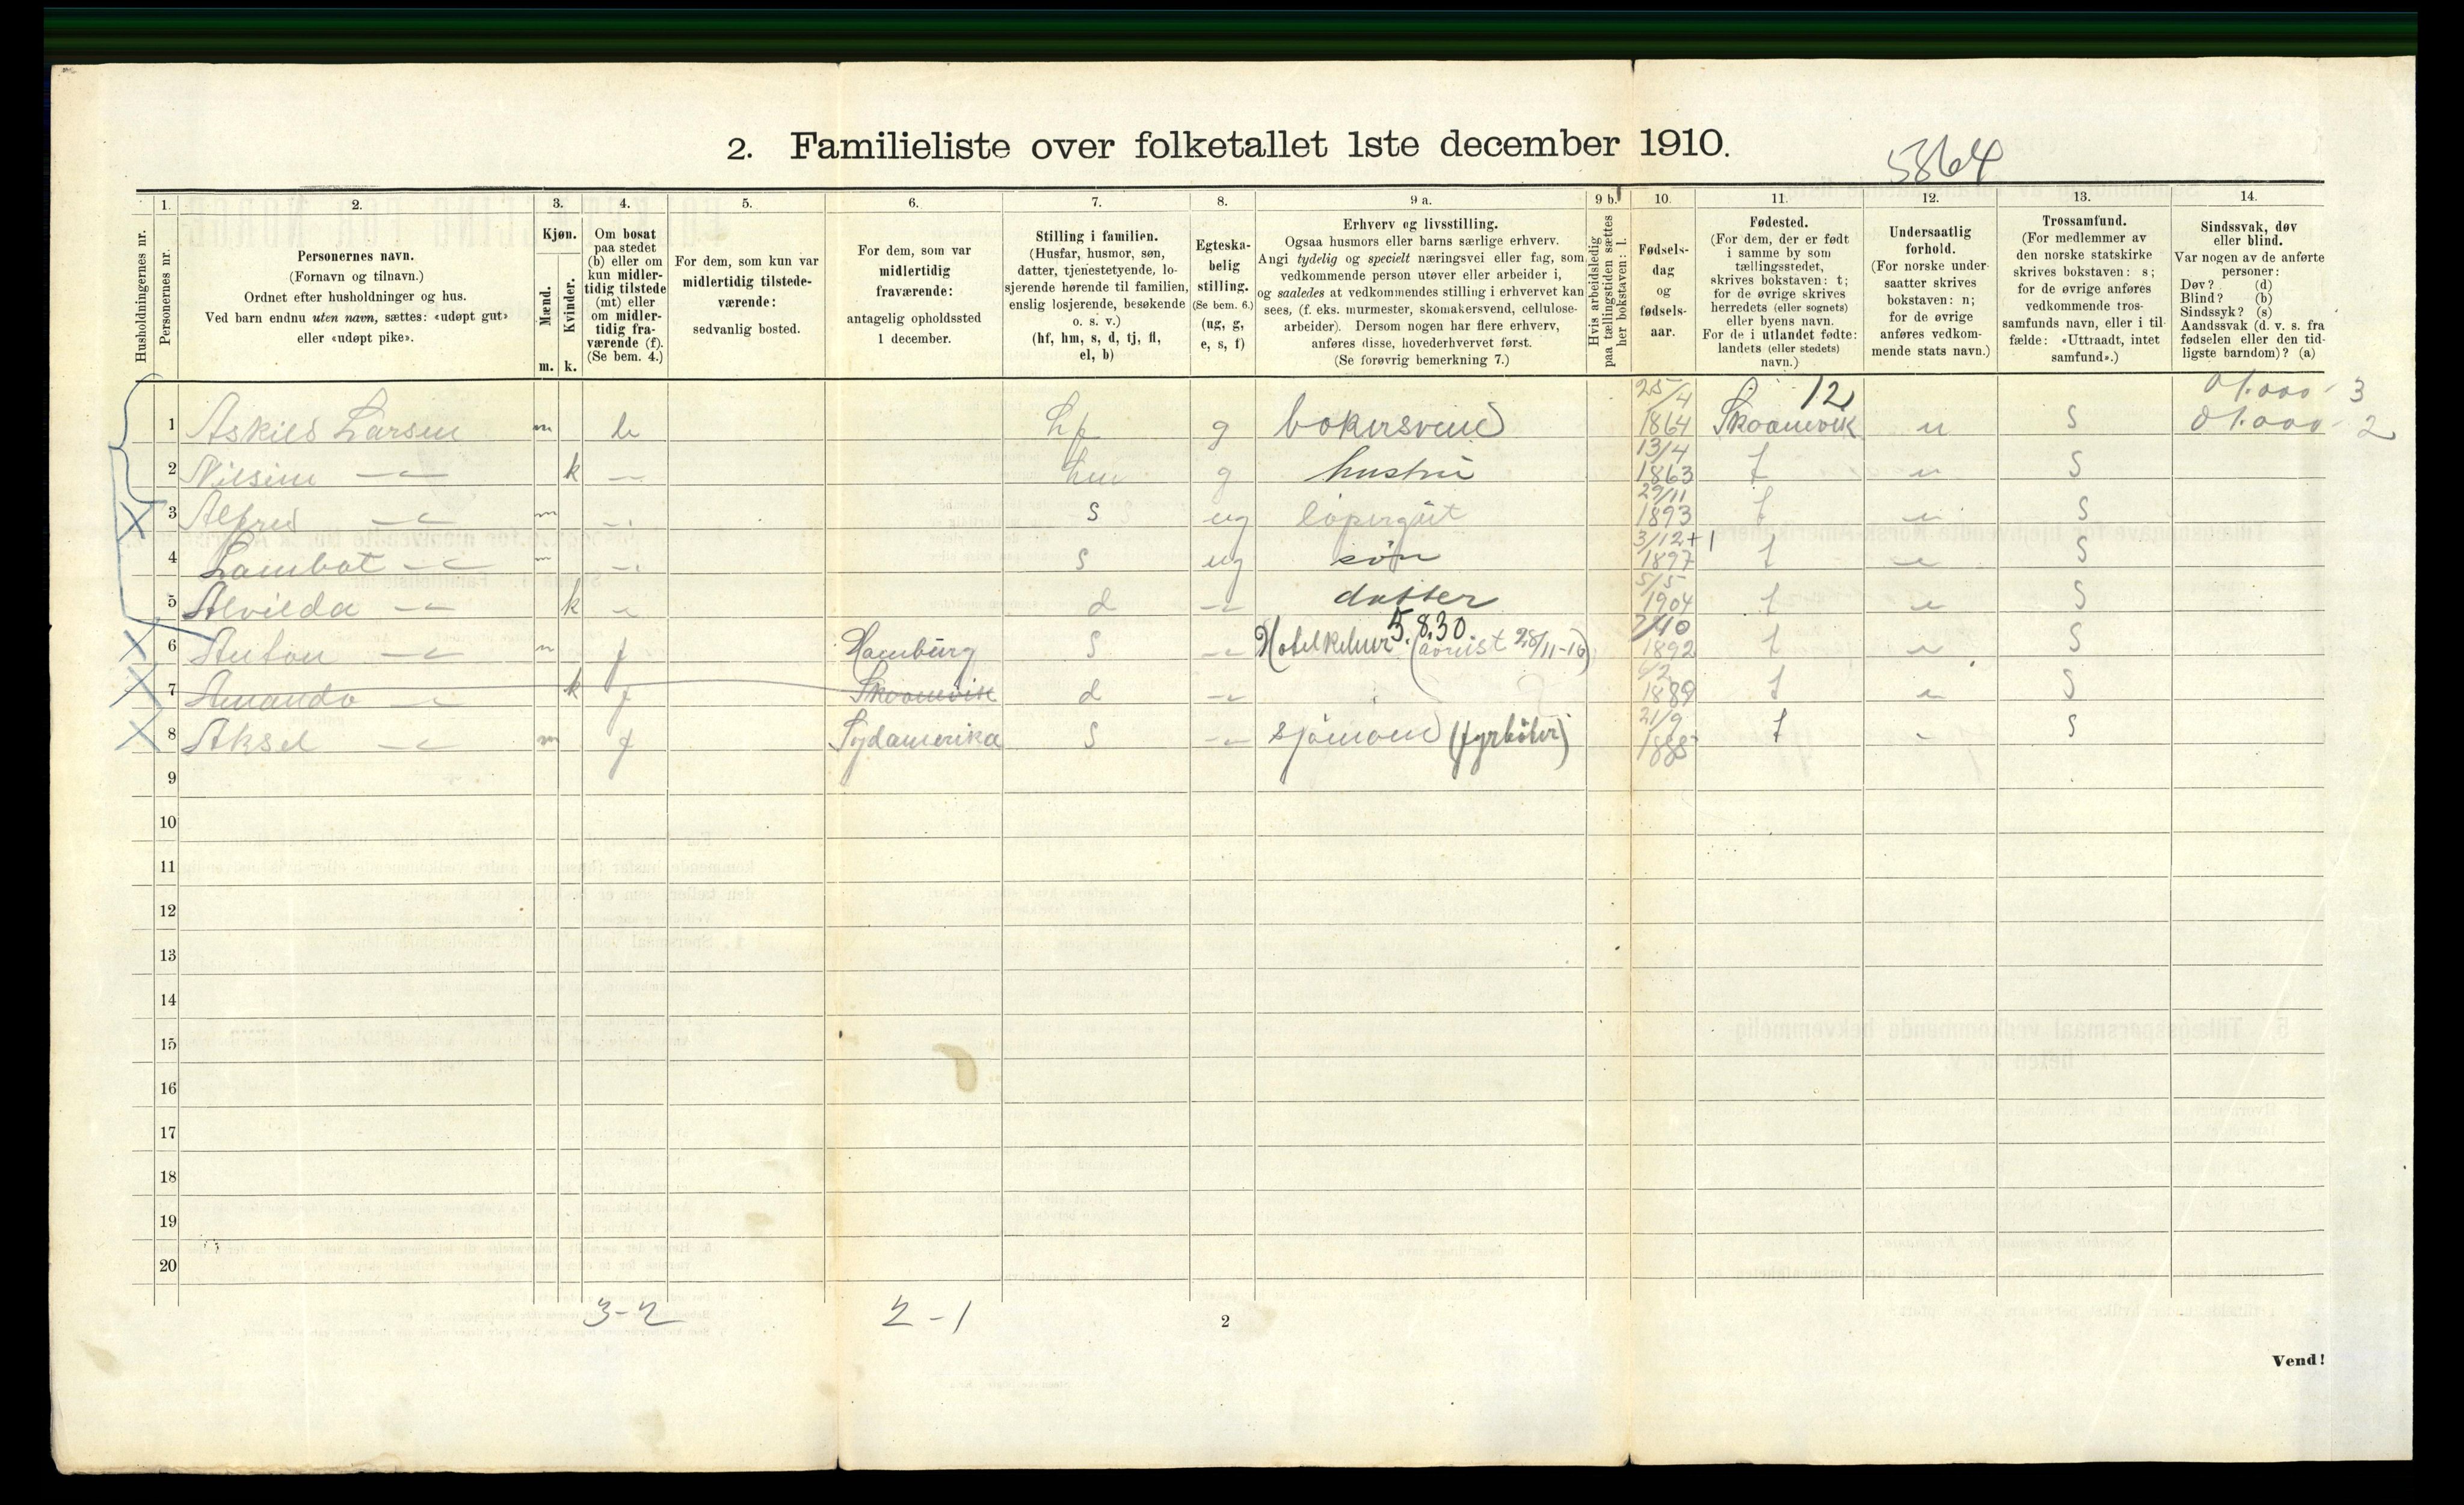 2. Familieliste over folketallet 1ste december 1910.
5864
Husholdningernes nr.
1.
Personernes nr.
2.
Personernes navn.
(Fornavn og tilnavn.)
Ordnet efter husholdninger og hus.
Ved barn endnu uten navn, sættes: «udøpt gut»
eller «udøpt pike».
3.
Kjøn.
Mænd.
Kvinder.
m. k.
4.
Om bosat
paa stedet
(b) eller om
kun midler-
tidig tilstede
(mt) eller
om midler-
tidig fra-
værende (f).
(Se bem. 4.)
5.
For dem, som kun var
midlertidig tilstede-
værende:
sedvanlig bosted.
6.
For dem, som var
midlertidig
fraværende:
antagelig opholdssted
1 december.
7.
Stilling i familien.
(Husfar, husmor, søn,
datter, tjenestetyende, lo-
sjerende hørende til familien,
enslig losjerende, besøkende
o. s. v.)
(hf, hm, s, d, tj, fl,
el, b)
8.
Egteska-
belig
stilling.
(Se bem. 6.)
(ug, g,
e, s, f)
9 a.
Erhverv og livsstilling.
Ogsaa husmors eller barns særlige erhverv.
Angi tydelig og specielt næringsvei eller fag, som
vedkommende person utøver eller arbeider i,
og saaledes at vedkommendes stilling i erhvervet kan
sees, (f. eks. murmester, skomakersvend, cellulose-
arbeider). Dersom nogen har flere erhverv,
anføres disse, hovederhvervet først.
(Se forøvrig bemerkning 7.)
9 b.
Hvis arbeidsledig
paa tællingstiden sættes
her bokstaven: l.
10.
Fødsels-
dag
og
fødsels-
aar.
11.
Fødested.
(For dem, der er født
i samme by som
tællingsstedet,
skrives bokstaven: t;
for de øvrige skrives
herredets (eller sognets)
eller byens navn.
For de i utlandet fødte:
landets (eller stedets)
navn.)
12.
Undersaatlig
forhold.
(For norske under-
saatter skrives
bokstaven: n;
for de øvrige
anføres vedkom-
mende stats navn.)
13.
Trossamfund.
(For medlemmer av
den norske statskirke
skrives bokstaven: s;
for de øvrige anføres
vedkommende tros-
samfunds navn, eller i til-
fælde: «Uttraadt, intet
samfund».)
14.
Sindssvak, døv
eller blind.
Var nogen av de anførte
personer:
Døv? (d)
Blind? (b)
Sindssyk? (s)
Aandssvak (d. v. s. fra
fødselen eller den tid-
ligste barndom)? (a)
01.000 - 3
1 Askild Larsen m b hf g bøkersvend 25/4 1864 12 Skaanevik n S 01.000 - 2
2 Nilsine —"— k — hm g hustru 13/4 1863 t n S
3 Alfred —"— m — s ug løpergut 29/11 1893 t n S
4 Lambat —"— m — s ug søn 3/12 + 1 1897 t n S
5 Alvilda —"— k — d —"— datter 5/5 1904 t n S
6 Anton —"— m f Hamburg S —"— Hotelkelner 5.8.30. 28/11-10) 7/10 1892 t n S
7 Amanda —"— k f Skaanevik d —"— 1889 t n S
8 Aksel —"— m f Sydamerika S —"— sjømand (fyrbøter) 21/9 1888 t S
9
10
11
12
13
14
15
16
17
18
19
20
3-2
2-1
2
Vend!